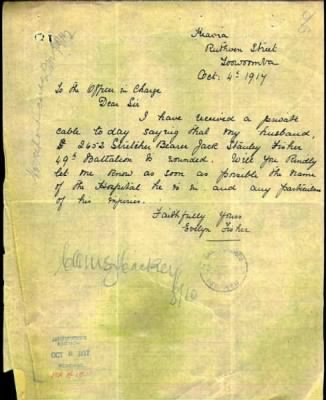 Ruthven Street
Toowoomba
Oct. 4th 1917
To the Officer in Charge
Dear Sir
I have received a private
cable to day saying that my husband,
2652 Stretcher Bearer Jack Stanley Fisher
49th Battalion is wounded. Will you kindly
let me know as soon as possible the name
of the Hospital he is in and any particulars
of his injuries.
Faithfully Yours
Evelyn Fisher
8/10
OCT 8 1917